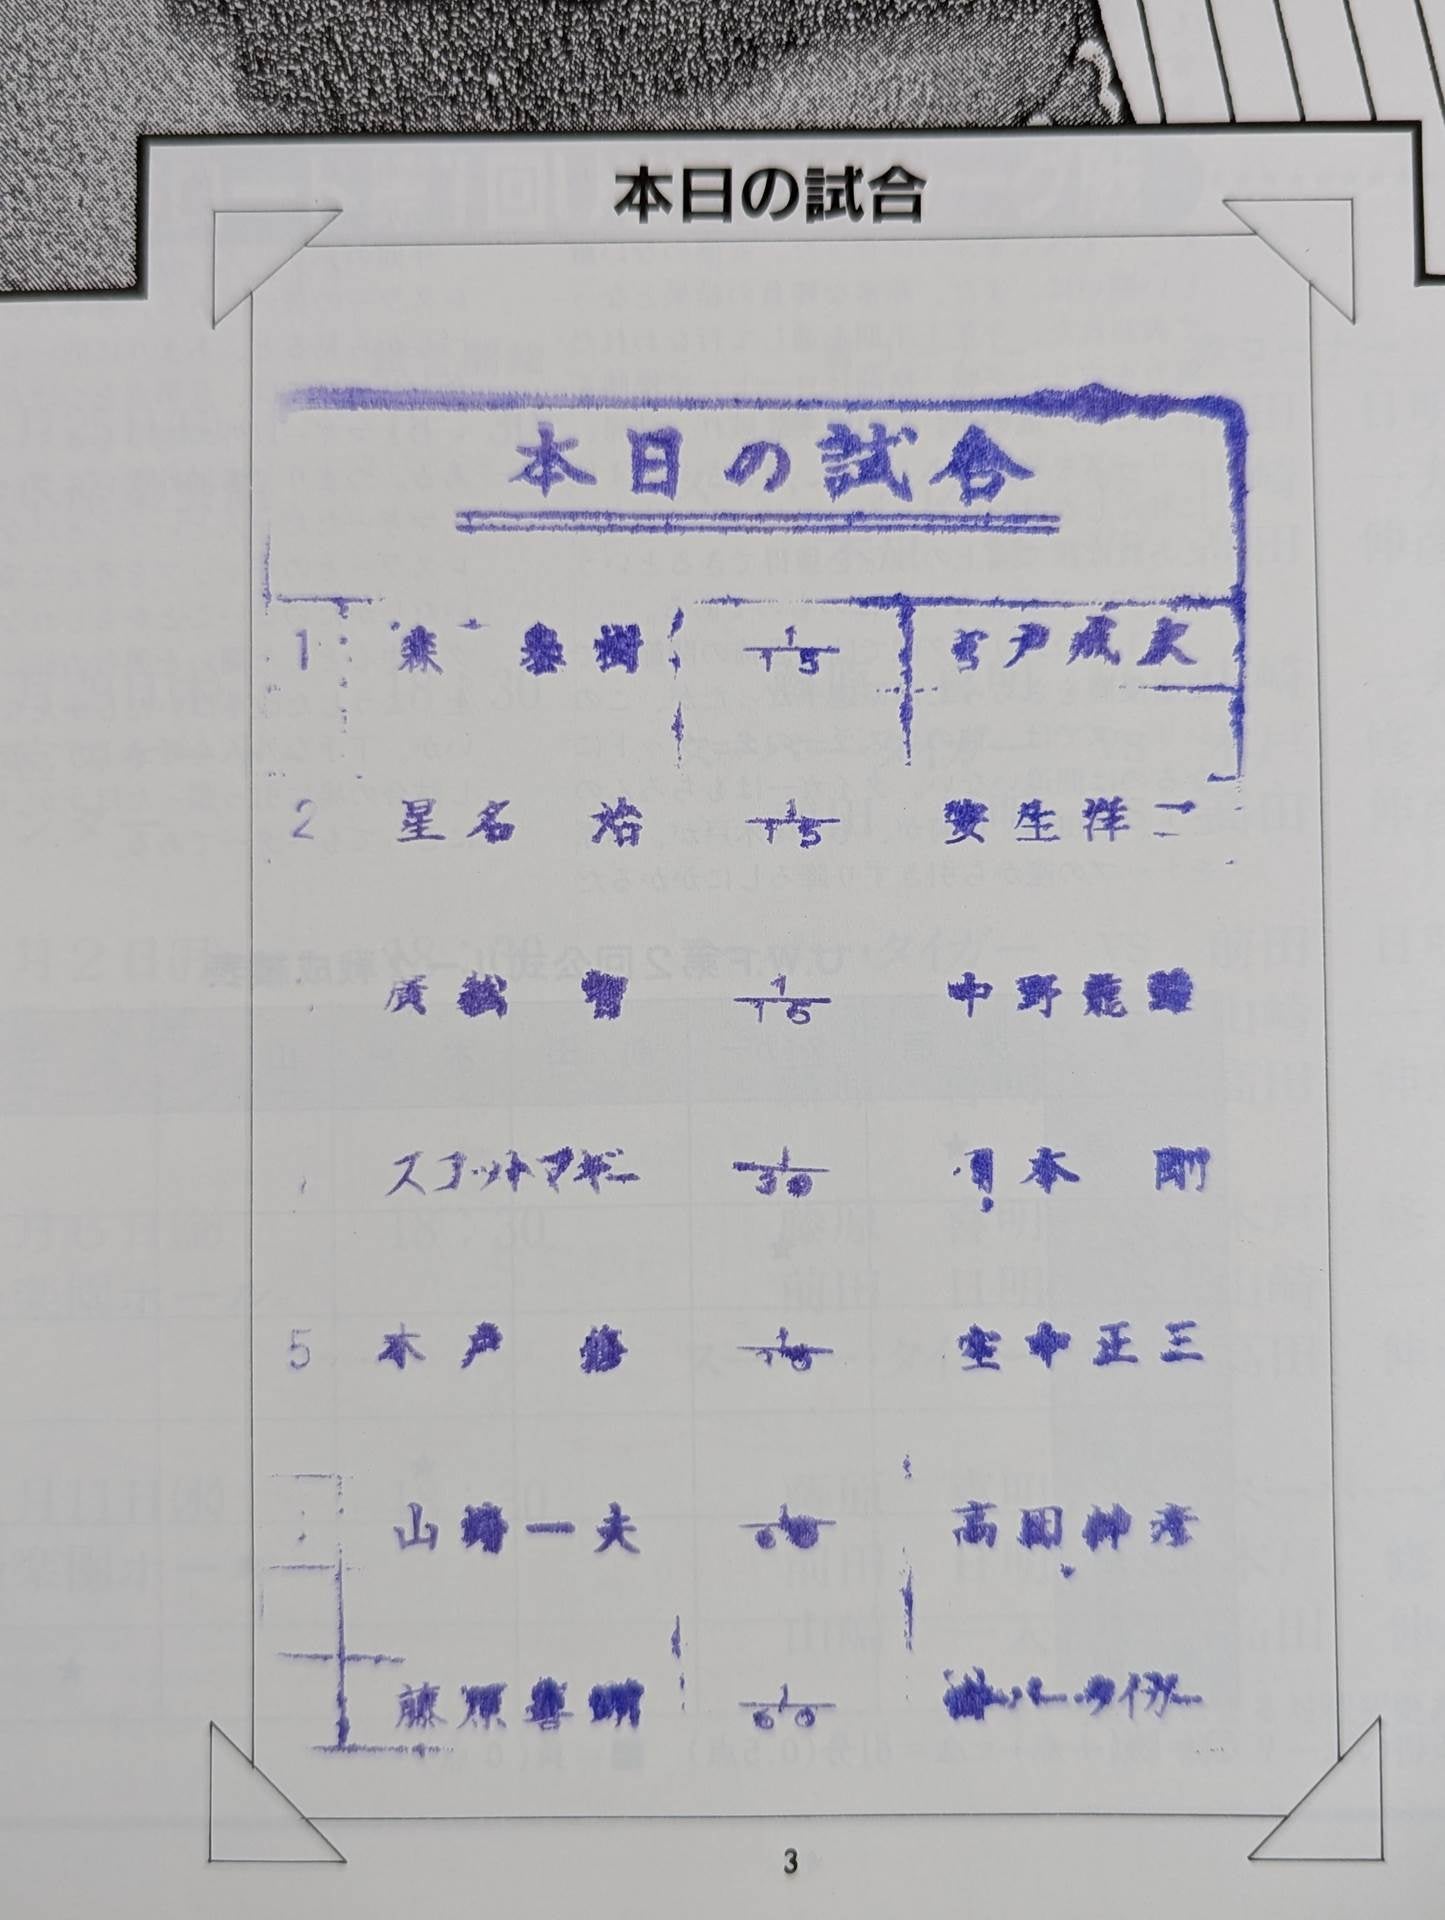 本日の試合
本日の試合
1 森 泰樹 1/15 宮戸成夫
2 星名 治 1/15 安生洋二
廣松 智 1/15 中野龍雄
スコットマギー 1/30 岡本 剛
5 木戸 修 1/45 空中正三
山崎一夫 1/60 高田伸彦
藤原喜明 1/60 スーパー・タイガー
3